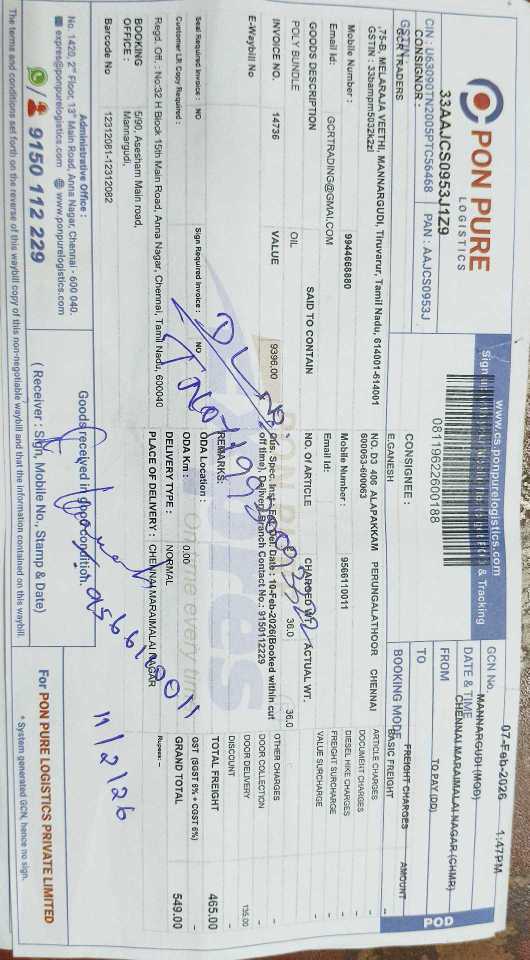 PON PURE
LOGISTICS
33AAJCS0953J1Z9
CIN : U63090TN2005PTC56468
PAN : AAJCS0953J
www.cs.ponpurelogistics.com
& Tracking
081196226001​88
GCN No.
07-Feb-2026 1:47PM
DATE & TIME
MANNARGUDI (MGD)
FROM
CHENNAI MARAIMALAI NAGAR (CHMR)
TO
TO PAY (DD)
BOOKING MODE
POD
CONSIGNOR :
GCR TRADERS
,75-B, MELARAJA VEETHI, MANNARGUDI, Tiruvarur, Tamil Nadu, 614001-614001
GSTIN : 33bampm5032k2zl
Mobile Number : 9944668880
Email Id: GCRTRADING@GMAI.COM
CONSIGNEE:
E.GANESH
NO. D3 406 ALAPAKKAM PERUNGALATHOOR CHENNAI
600063-600063
Mobile Number : 9566110011
Email Id:
GOODS DESCRIPTION SAID TO CONTAIN NO. Of ARTICLE CHARGED WT. ACTUAL WT.
POLY BUNDLE OIL 36.0 36.0
INVOICE NO. 14736 VALUE 9396.00
E-Waybill No
Del. Date : 10-Feb-2026(Booked within cut
off time), Delivery Branch Contact No : 9150112229
Seal Required Invoice : NO Sign Required Invoice : NO
Customer LR Copy Required :
REMARKS:
ODA Location :
ODA Km : 0.00
DELIVERY TYPE : NORMAL
PLACE OF DELIVERY : CHENNAI MARAIMALAI NAGAR
Regd. Off. : No:32 H Block 15th Main Road, Anna Nagar, Chennai, Tamil Nadu, 600040
BOOKING OFFICE : 5/90, Asesham Main road,
Mannargudi,
Barcode No 12312081-12312082
FREIGHT CHARGES AMOUNT
BASIC FREIGHT -
ARTICLE CHARGES -
DOCUMENT CHARGES -
DIESEL HIKE CHARGES -
FREIGHT SURCHARGE -
VALUE SURCHARGE -
OTHER CHARGES -
DOOR COLLECTION -
DOOR DELIVERY 135.00
DISCOUNT -
TOTAL FREIGHT 465.00
GST (SGST 9% + CGST 9%)
GRAND TOTAL 549.00
Rupees: --
Administrative Office :
No. 1420, 2nd Floor, 13th Main Road, Anna Nagar, Chennai - 600 040.
expres@ponpurelogistics.com www.ponpurelogistics.com
9150 112 229
Goods received in good condition.
9566110011
11/2/26
( Receiver : Sign, Mobile No., Stamp & Date)
For PON PURE LOGISTICS PRIVATE LIMITED
* System generated GCN, hence no sign.
The terms and conditions set forth on the reverse of this waybill copy of this non-negotiable waybill and that the information contained on this waybill.